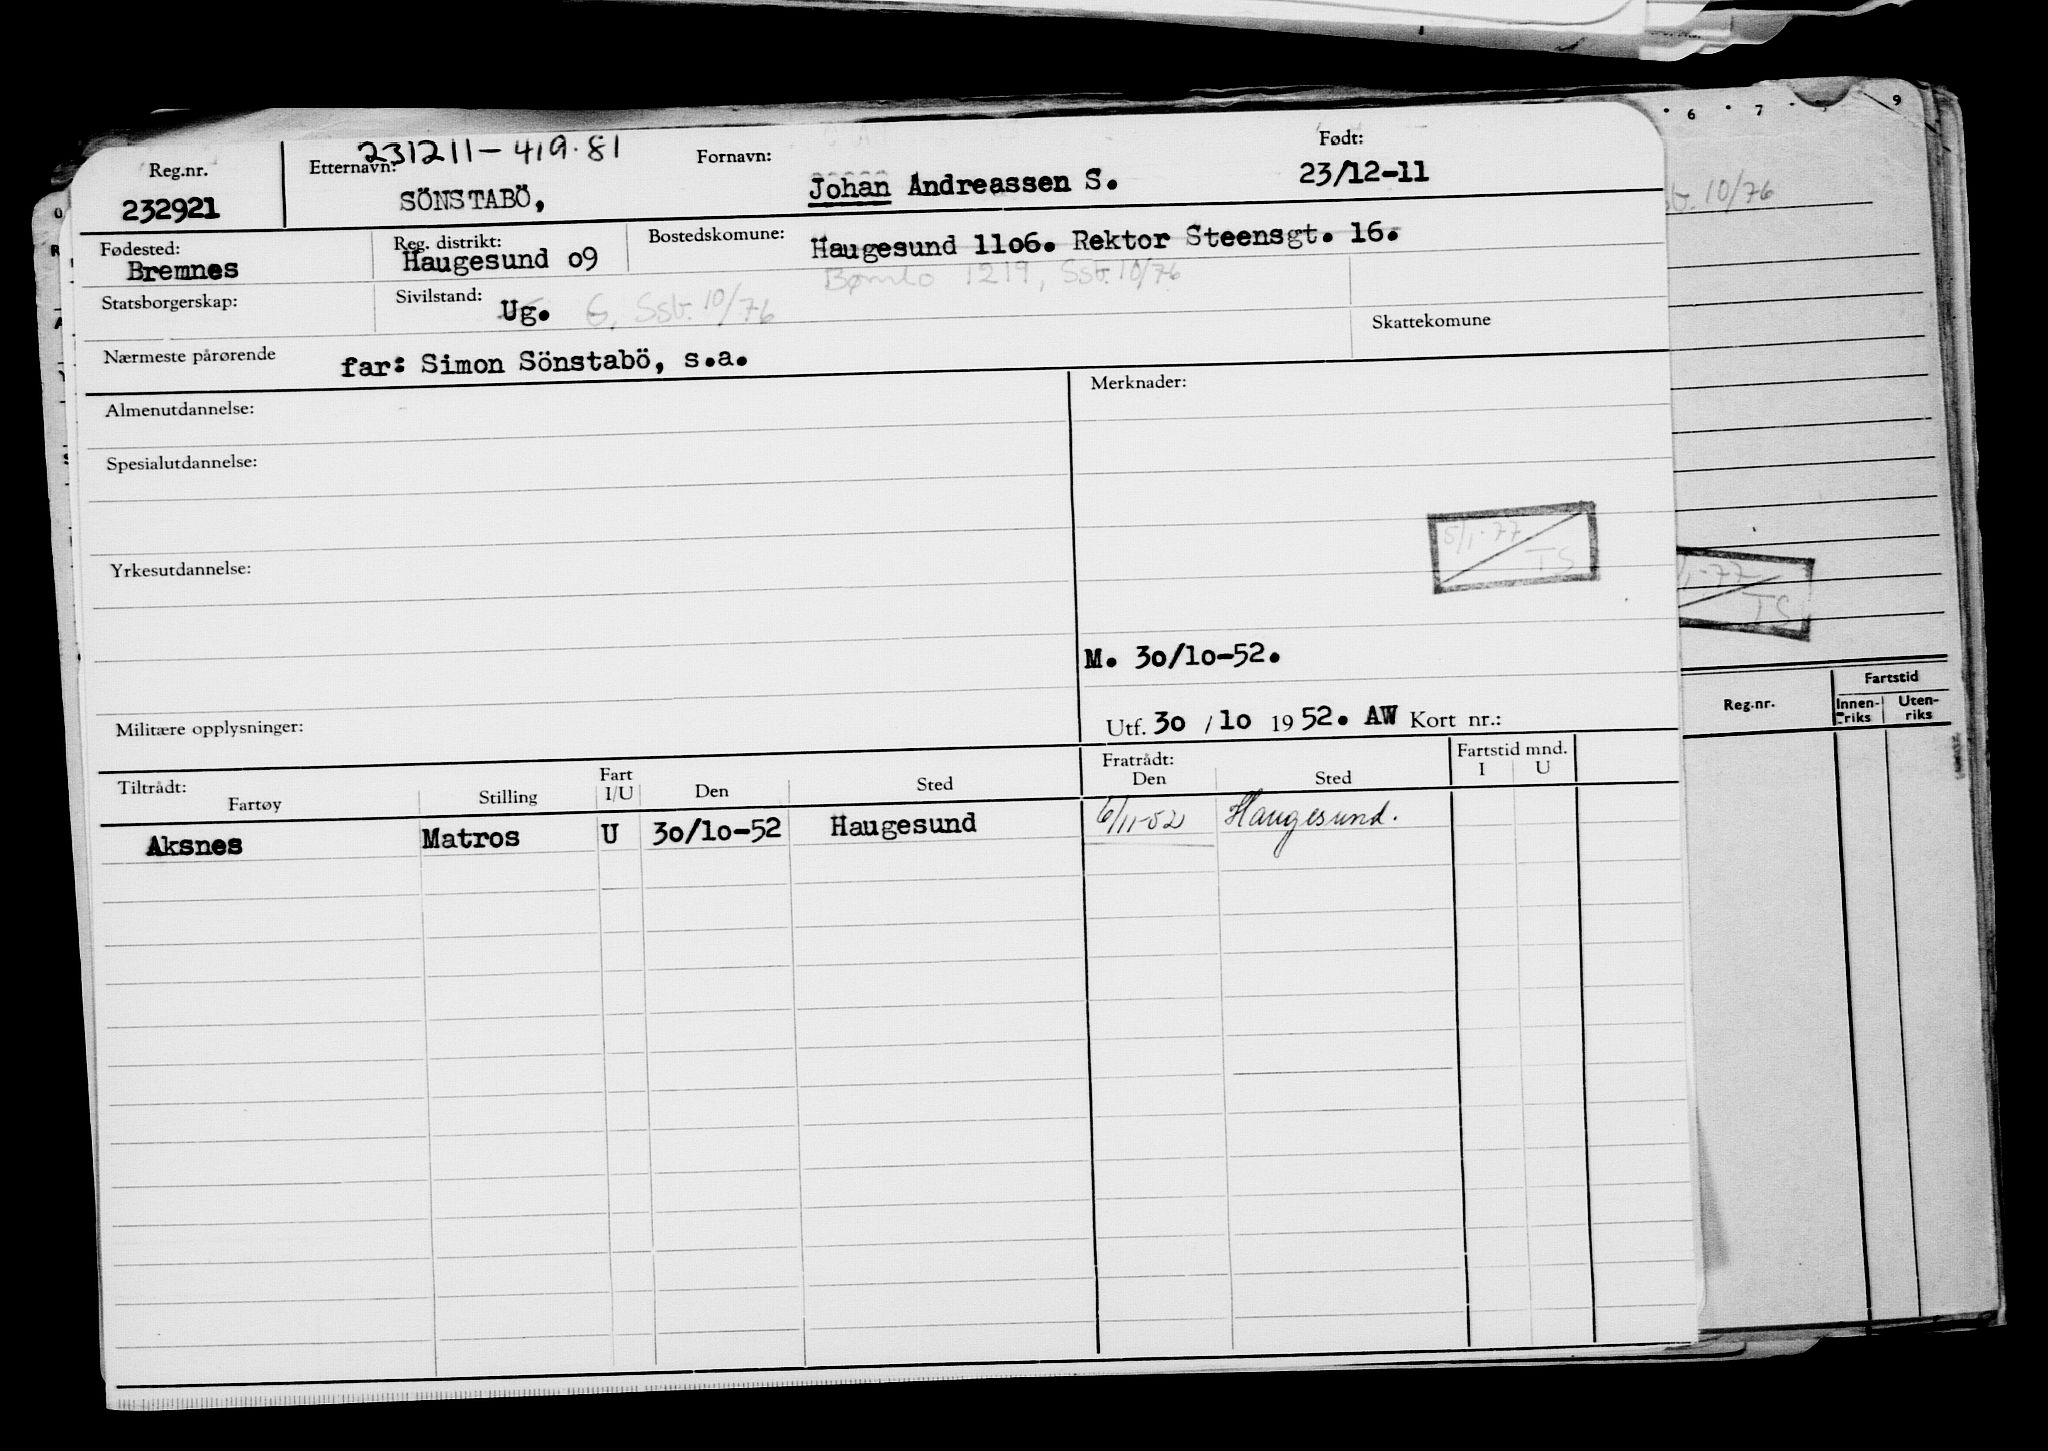 231211-419.81
Reg.nr. Etternavn: Fornavn: Født:
232921 SÖNSTABÖ, Johan Andreassen S. 23/12-11
Fødested: Reg. distrikt: Bostedskomune:
Bremnes Haugesund 09 Haugesund 11o6. Rektor Steensgt. 16.
Bømlo 1219, Sst. 10/76
Statsborgerskap: Sivilstand: Ug. G. Sst. 10/76
Skattekomune
Nærmeste pårørende far: Simon Sönstabö, s.a.
Almenutdannelse: Merknader:
Spesialutdannelse:
5/1-77
TS
Yrkesutdannelse:
M. 3o/1o-52.
Militære opplysninger: Utf. 3o / 1o 19 52. AW Kort nr.:
Tiltrådt: Fratrådt: Fartstid mnd.
Fartøy Stilling Fart I/U Den Sted Den Sted I U
Aksnes Matros U 3o/1o-52 Haugesund 6/11-52 Haugesund.
6 7 9
st. 10/76
1-77
TS
Reg.nr. Fartstid
Innen-riks Uten-riks